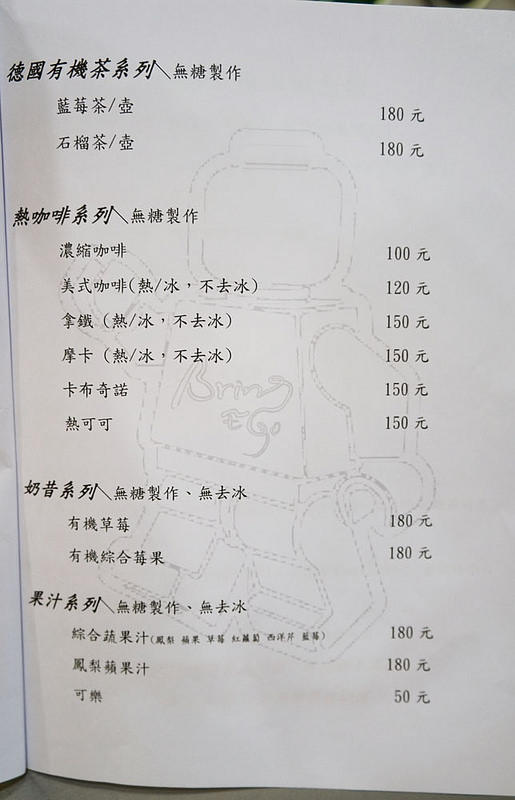 德國有機茶系列╲無糖製作
藍莓茶/壺 180 元
石榴茶/壺 180 元
熱咖啡系列╲無糖製作
濃縮咖啡 100 元
美式咖啡(熱/冰，不去冰) 120 元
拿鐵 (熱/冰，不去冰) 150 元
摩卡 (熱/冰，不去冰) 150 元
卡布奇諾 150 元
熱可可 150 元
Bring
奶昔系列╲無糖製作、無去冰
有機草莓 180 元
有機綜合莓果 180 元
果汁系列╲無糖製作、無去冰
綜合蔬果汁(鳳梨 蘋果 草莓 紅蘿蔔 西洋芹 藍莓) 180 元
鳳梨蘋果汁 180 元
可樂 50 元